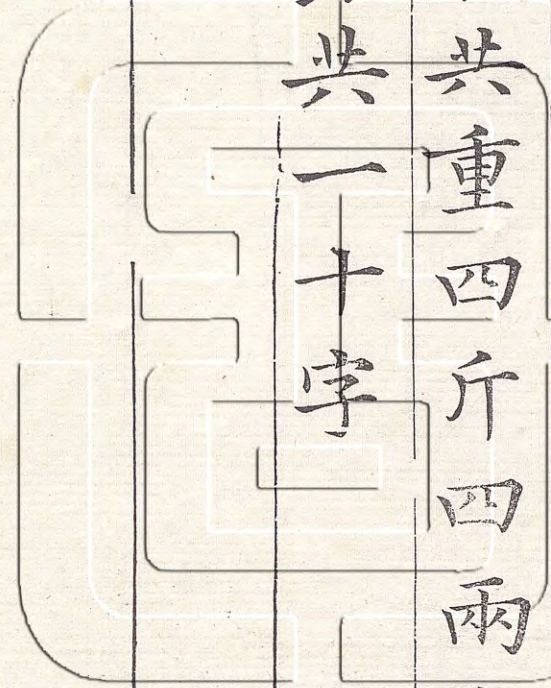 共重四斤四兩
共一十字